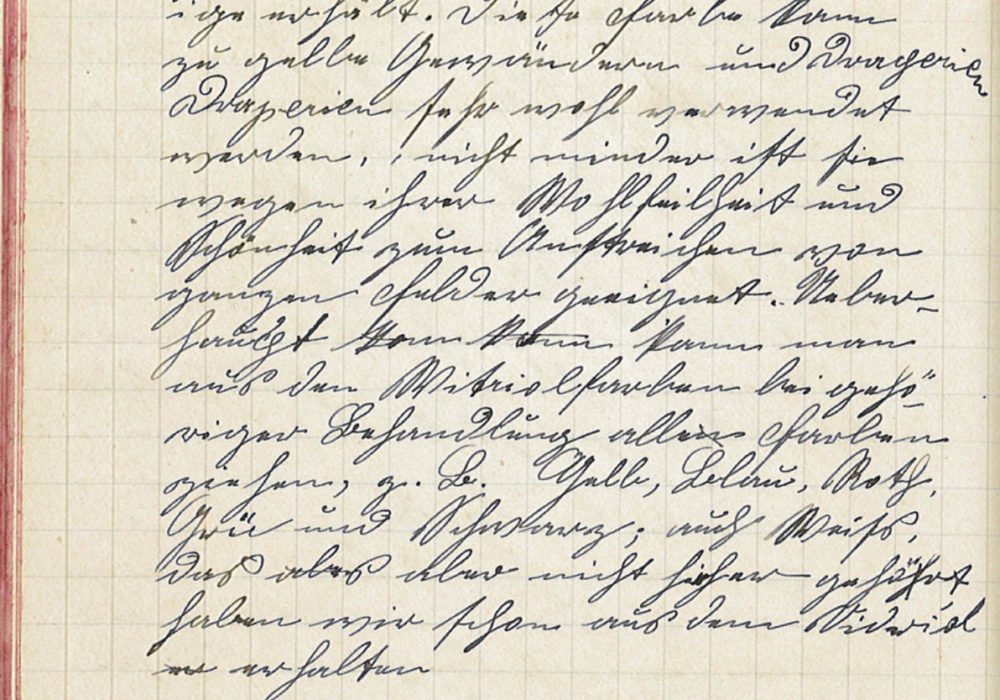 ige erhält. Diese Farbe kann
zu gelbe Gewändern und Dragerien
Draperien sehr wohl verwendet
werden, nicht minder ist sie
wegen ihrer Wohlfeilheit und
Schönheit zum Anstreichen von
ganzen Felder geeignet. Ueber-
haupt kann man
aus den Witriolfarben bei gehö-
riger Behandlung allen Farben
ziehen, z. B. Gelb, Blau, Roth,
Grü und Schwarz; auch Weiss,
das aber nicht hieher gehört
haben wir schon aus dem
er erhalten